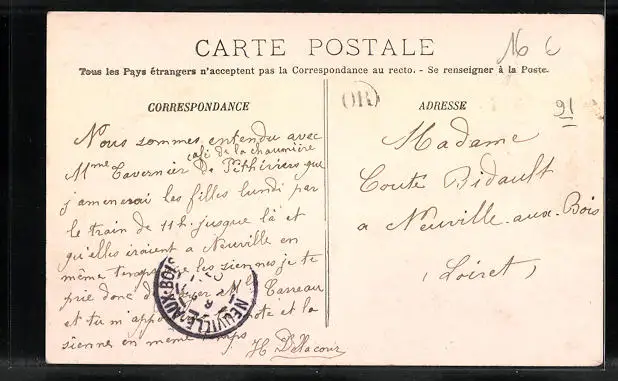 CARTE POSTALE
Tous les Pays étrangers n'acceptent pas la Correspondance au recto. - Se renseigner à la Poste.
CORRESPONDANCE
Nous sommes entendu avec
café de la chaumière
Mme Tavernier de Pithiviers que
j'amenerai les filles lundi par
le train de 11h. jusque là et
qu'elles iraient a Neuville en
même temps que les siennes je te
prie donc de a Mlle
et tu m' note et la
sienne en même temps
H. Delacour
OR
ADRESSE
91
Madame
Coute Bidault
a Neuville-aux-Bois
(Loiret)
NEUVILLE-AUX-BOIS